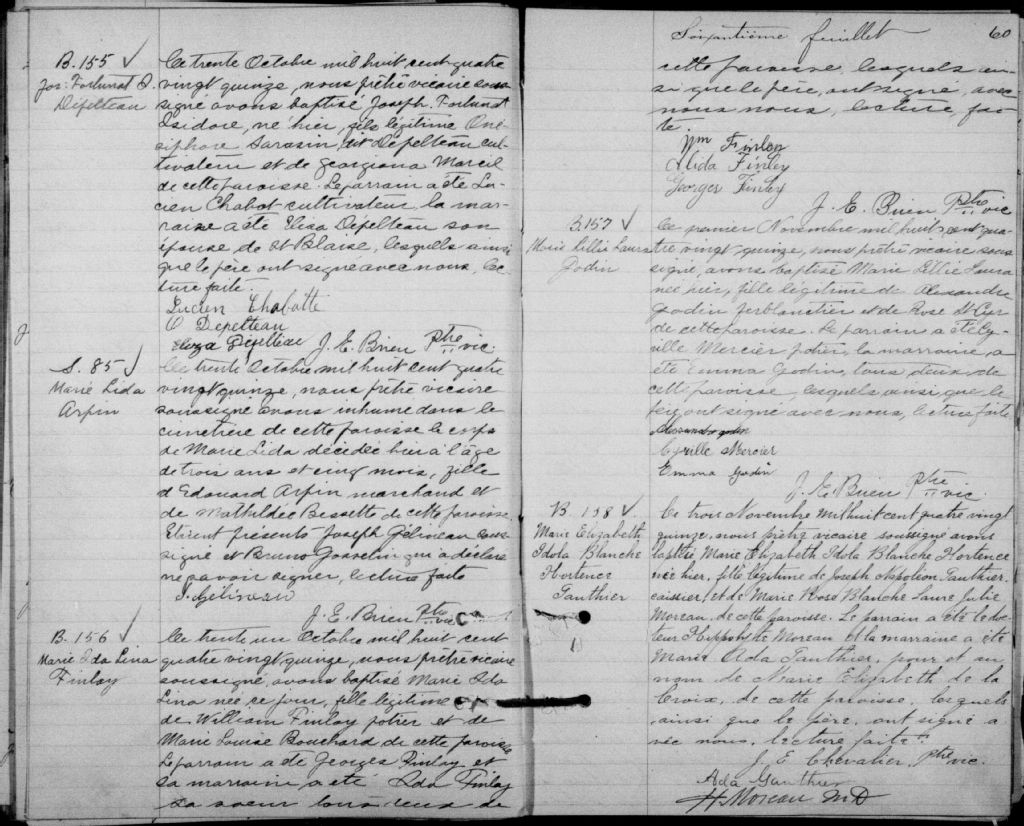 B. 155 ✓
Jos. Fortunat I.
Dépelteau
Ce trente Octobre mil huit cent quatre
vingt quinze, nous prêtre vicaire sous
signé avons baptisé Joseph Fortunat
Isidore, né hier, fils légitime Oné-
siphore Sarasin, dit Dépelteau cul-
tivateur et de Georgiana Marcil
de cette paroisse. Le parrain a été Lu-
cien Chabot cultivateur la mar-
raine a été Eliza Dépelteau son
épouse de St Blaise, lesquels ainsi
que le père ont signé avec nous, lec-
ture faite.
Lucien Chabotte
O Depelteau
Eliza Depelteau J. E. Brien Ptre vic.
S. 85 ✓
Marie Lida
Arpin
Ce trente Octobre mil huit cent quatre
vingt quinze, nous prêtre vicaire
soussigné avons inhumé dans le
cimetière de cette paroisse le corps
de Marie Lida décédée hier à l'âge
de trois ans et cinq mois, fille
d'Edouard Arpin marchand et
de Mathildée Bessette de cette paroisse.
Etaient présents Joseph Gélineau sous-
signé et Bruno Gosselin qui a déclaré
ne savoir signer, lecture faite
J. Gelineau
J. E. Brien Ptre vic
B. 156 ✓
Marie Ida Lina
Finlay
Ce trente un Octobre mil huit cent
quatre vingt quinze, nous prêtre vicaire
soussigné, avons baptisé Marie Ida
Lina née ce jour, fille légitime
de William Finlay potier et de
Marie Louise Bouchard de cette paroisse
Le parrain a de Georges Finlay et
la marraine a été Ida Finlay
sa soeur tous deux de
Soixantième feuillet 60
cette paroisse, lesquels ain-
si que le père, ont signé, avec
nous nous, lecture, fai-
te.
Wm Finlay
Alida Finley
Georges Finley
J. E. Brien Ptre vic
B. 157 ✓
Marie Lillie Laura
Godin
Ce premier Novembre mil huit cent qua-
tre vingt quinze, nous prêtre vicaire sous
signé, avons baptisé Marie Lillie Laura
née hier, fille légitime de Alexandre
Godin ferblantier et de Rose St Cyr
de cette paroisse. Le parrain a été Cy-
rille Mercier potier, la marraine, a
été Emma Godin, tous deux de
cette paroisse, lesquels ainsi que le
père, ont signé avec nous, lecture faite
Alexandre godin
Cyrille Mercier
Emma Godin
J. E. Brien Ptre vic.
B. 158 ✓
Marie Elizabeth
Idola Blanche
Hortence
Gauthier
Ce trois Novembre mil huit cent quatre vingt
quinze, nous prêtre vicaire soussigné avons
baptisé Marie Elizabeth Idola Blanche Hortence
née hier, fille légitime de Joseph Napoléon Gauthier,
caissier, et de Marie Rose Blanche Laure Julie
Moreau, de cette paroisse. Le parrain a été le doc-
teur Hippolyte Moreau et la marraine a été
Marie Ada Gauthier, pour et au
nom de Marie Elizabeth de la
Croix, de cette paroisse, lesquels
ainsi que le père, ont signé a
vec nous, lecture faite.
J. E. Chevalier, Ptre vic.
Ada Gauthier
H. Moreau M D